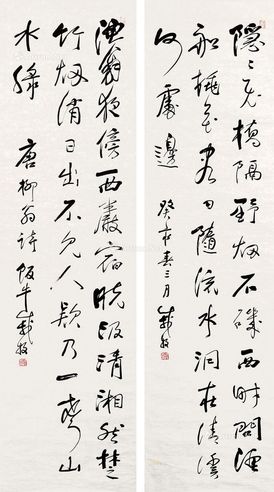 隱〻飛橋隔野烟石磯西畔問漁
船桃花盡日隨流水洞在清溪
何處邊 癸未春三月
漁翁夜傍西巖宿曉汲清湘然楚
竹烟消日出不見人欸乃一聲山
水緑 唐柳翁詩 飯牛